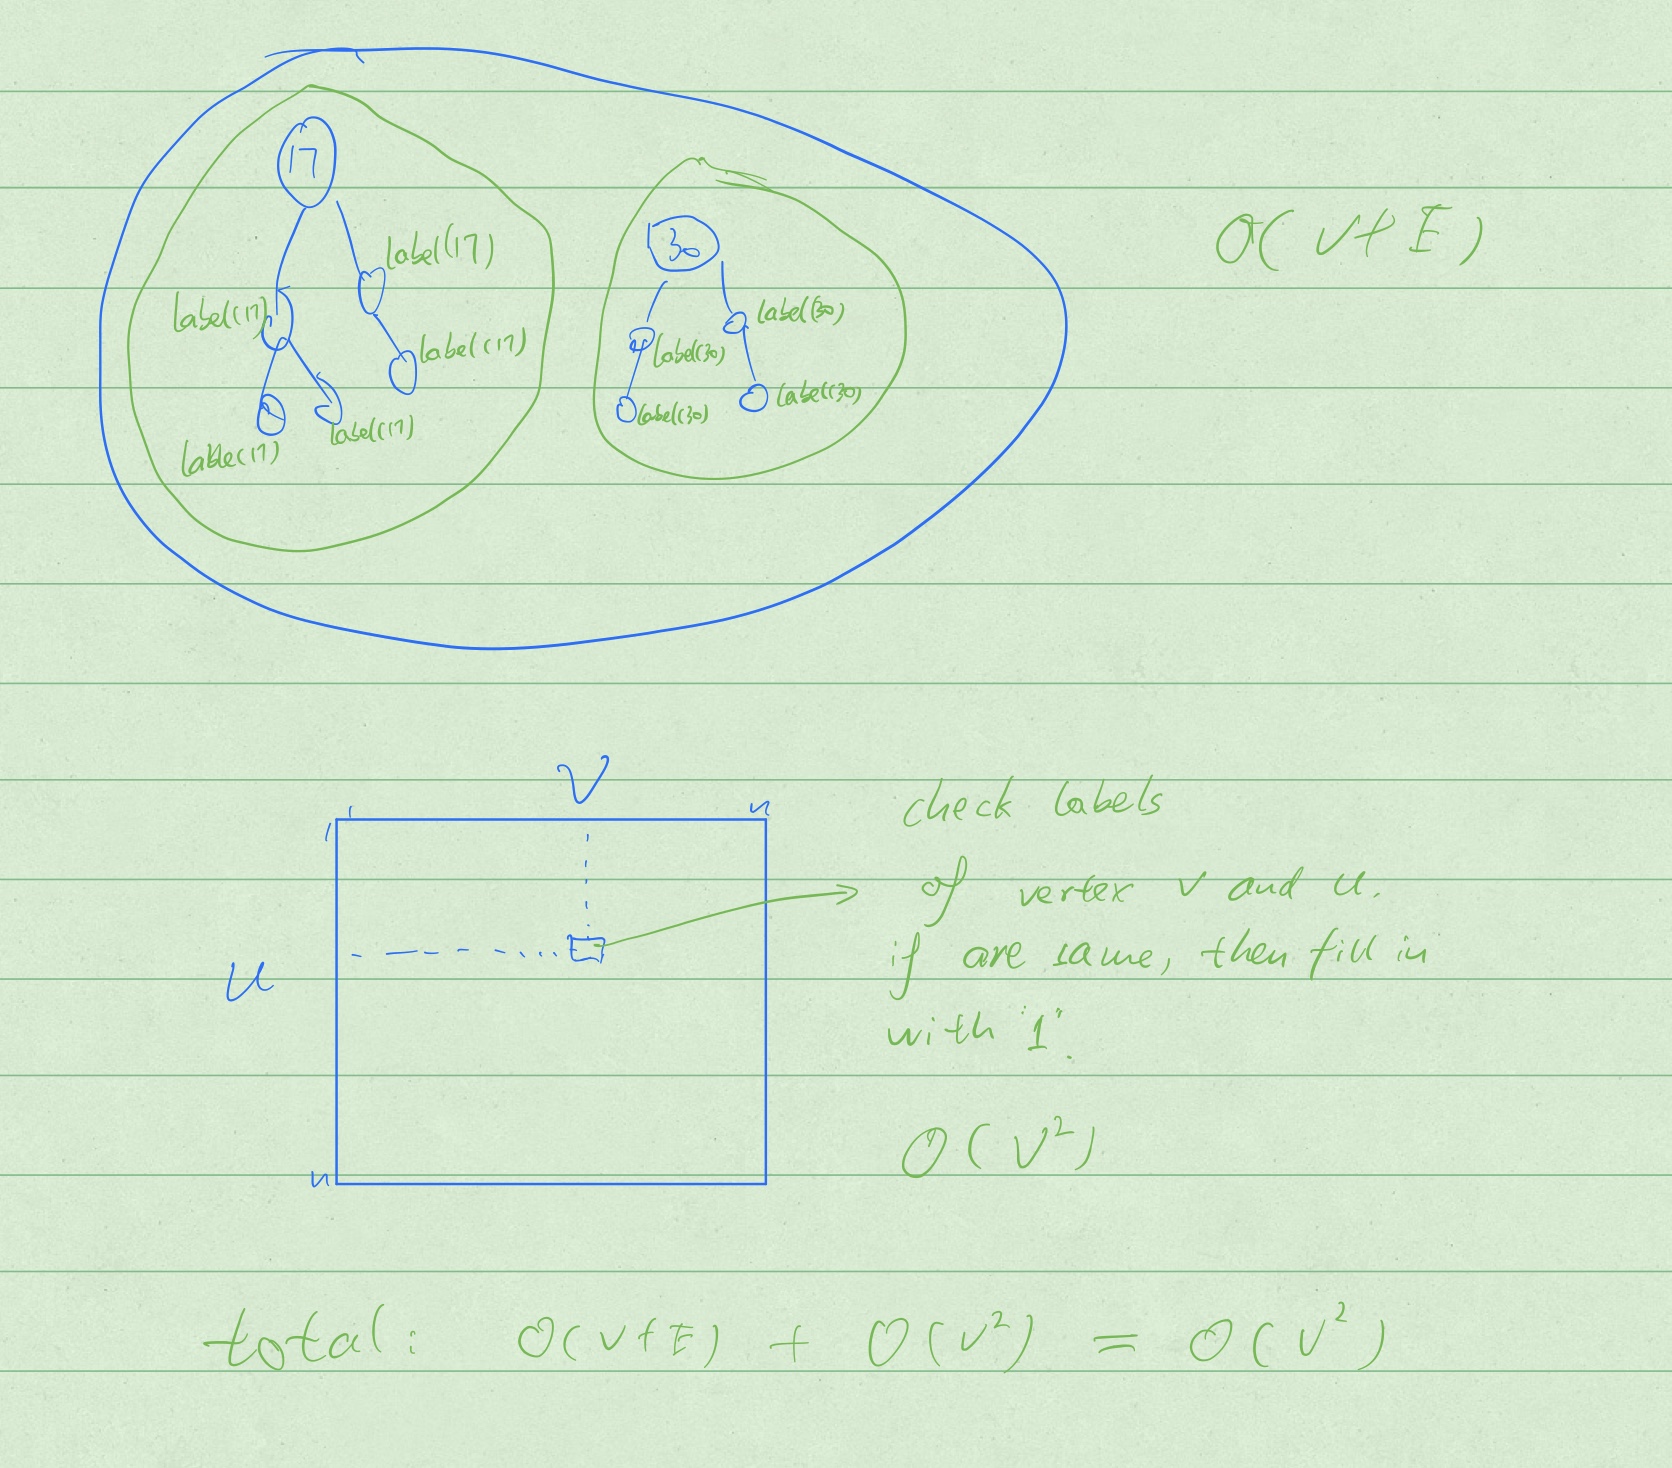 17
label(17)
label(17)
label(17)
lable(17)
label(17)
30
label(30)
label(30)
label(30)
label(30)
O(V+E)
V
1 n
1
U
n
check labels
of vertex v and u.
if are same, then fill in
with "1".
O(V²)
total: O(V+E) + O(V²) = O(V²)